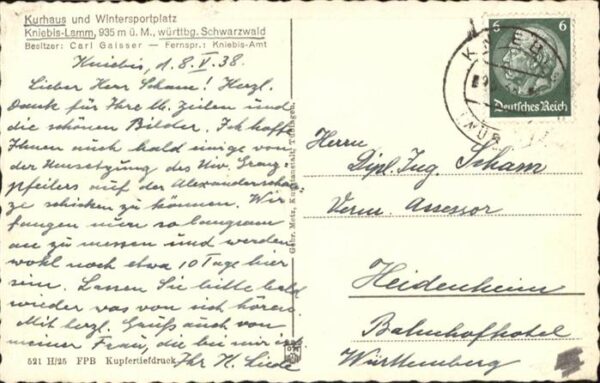 Kurhaus und Wintersportplatz
Kniebis-Lamm, 935 m ü. M., württbg. Schwarzwald
Besitzer: Carl Gaisser — Fernspr.: Kniebis-Amt
Kniebis, d. 8. V. 38.
Lieber Herr Scham! Herzl.
Dank für Ihre lb. Zeilen und
die schönen Bilder. Ich hoffe
Ihnen auch bald einige von
der Umsetzung des Niv. Grenz-
pfeilers auf der Alexanderschan-
ze schicken zu können. Wir
fangen nun so langsam
an zu messen und werden
wohl noch etwa 10 Tage hier
sein. Lassen Sie bitte bald
wieder was von sich hören.
Mit herzl. Gruß auch von
meiner Frau, die bei mir ist
Ihr H.
521 H/25 FPB Kupfertiefdruck
Gebr. Metz, Kunstanstalt, Tübingen.
6 6
Deutsches Reich
Herrn
Dipl. Ing. Scham
Verm. Assessor
Heidenheim
Bahnhofhotel
Württemberg